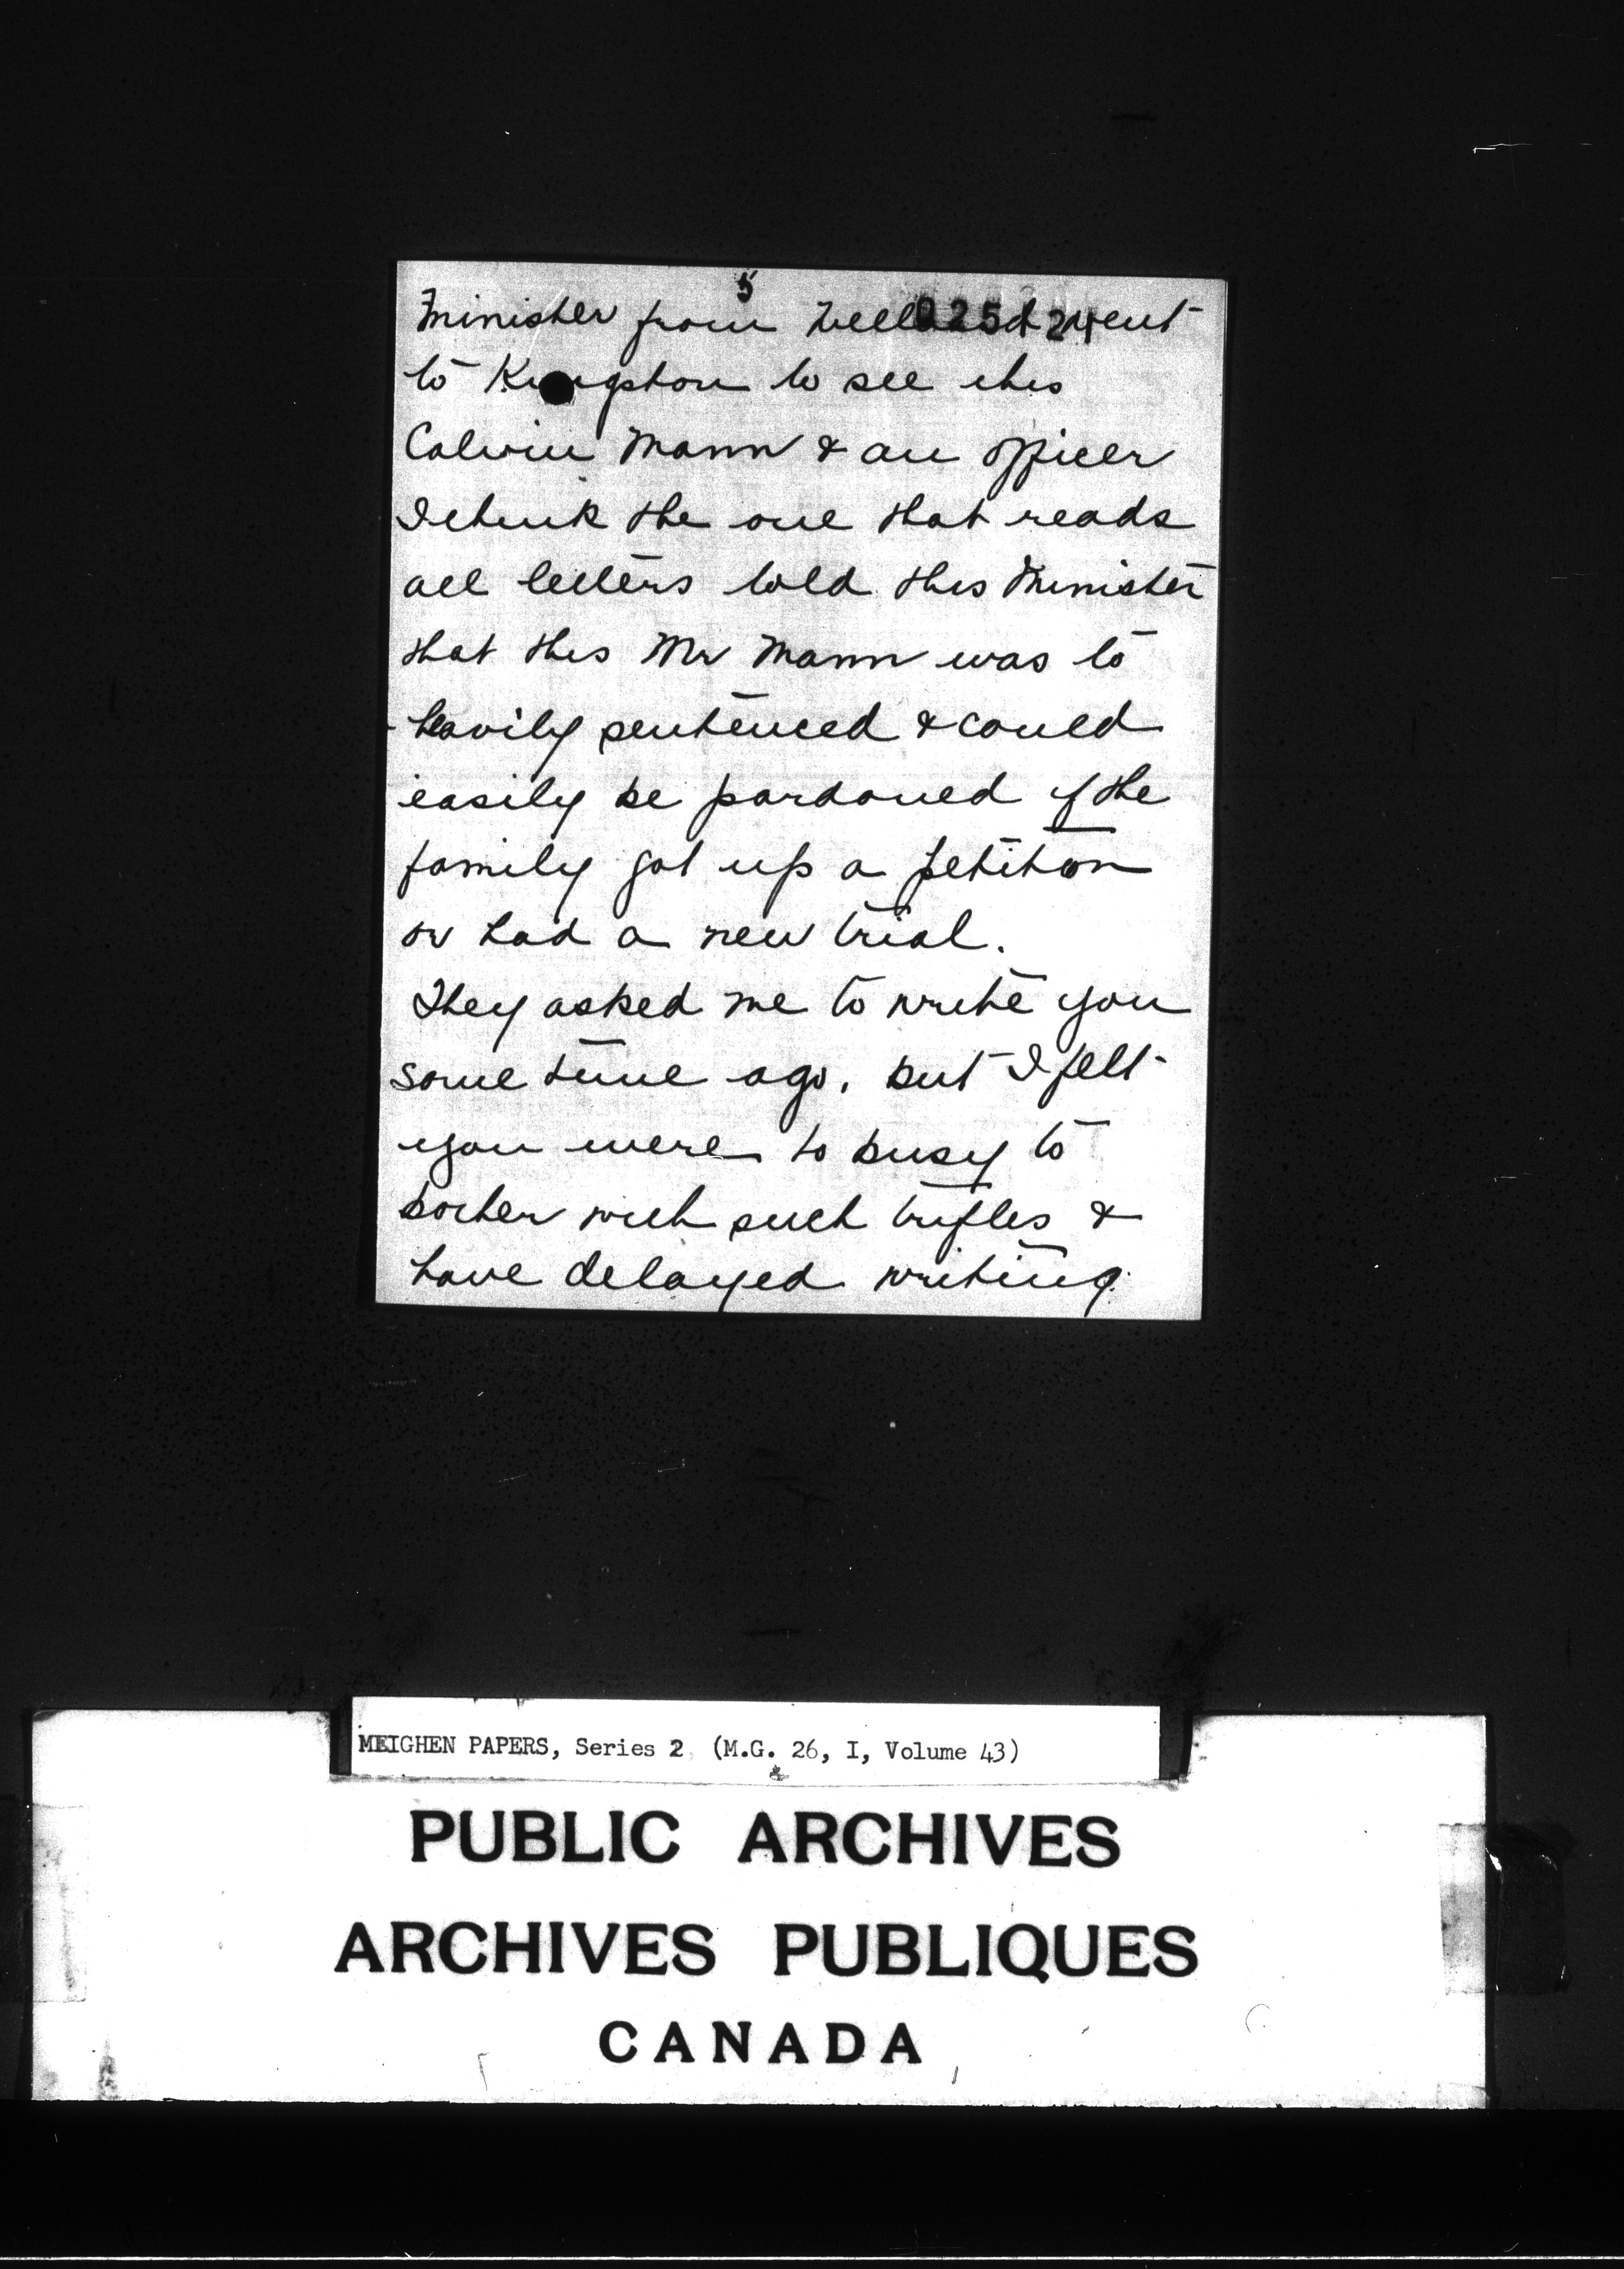 5
Minister from Welland went
025 24
to Kingston to see this
Calvin Mann & an officer
I think the one that reads
all letters told this Minister
that this Mr Mann was to
heavily sentenced & could
easily be pardoned if the
family got up a petition
or had a new trial.
They asked me to write you
some time ago, but I felt
you were to busy to
bother with such trifles &
have delayed writing.
MEIGHEN PAPERS, Series 2 (M.G. 26, I, Volume 43)
PUBLIC ARCHIVES
ARCHIVES PUBLIQUES
CANADA